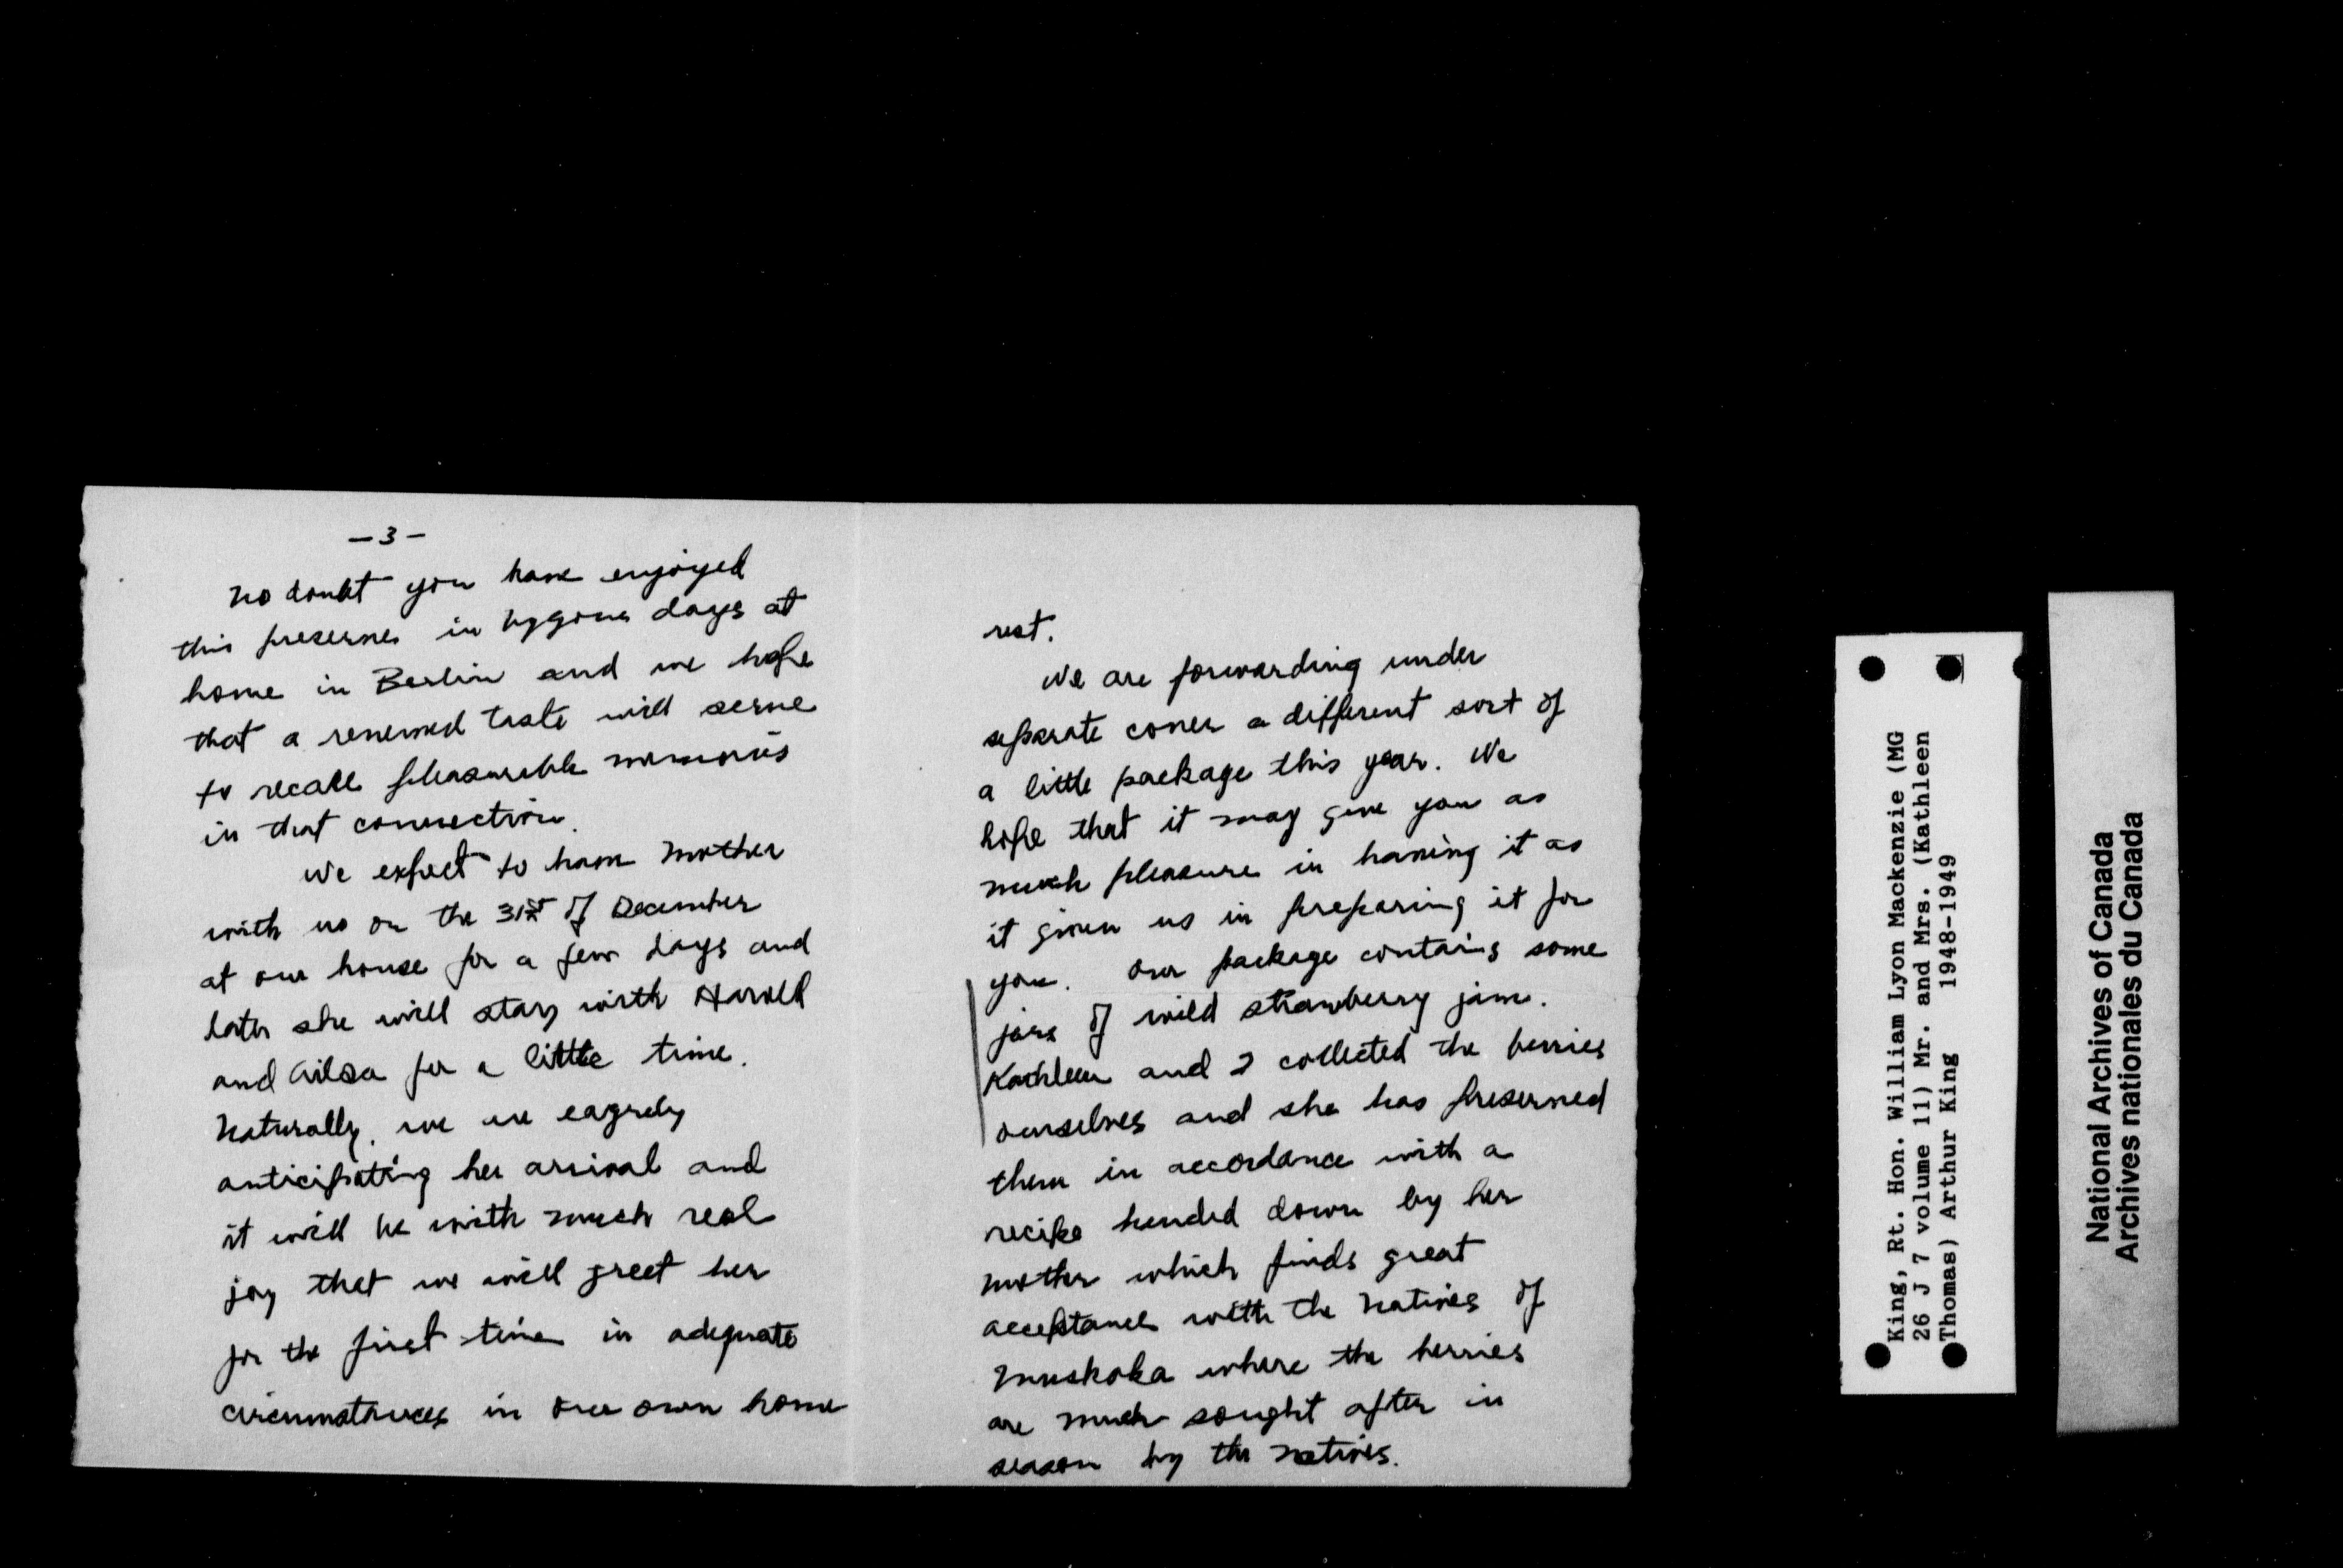 — 3 —
No doubt you have enjoyed
this preserve in bygone days at
home in Berlin and we hope
that a renewed taste will serve
to recall pleasurable memories
in that connection.
We expect to have Mother
with us on the 31st of December
at our house for a few days and
later she will stay with Harold
and Ailsa for a little time.
Naturally, we are eagerly
anticipating her arrival and
it will be with much real
joy that we will greet her
for the first time in adequate
circumstances in our own home
rest.
We are forwarding under
separate cover a different sort of
a little package this year. We
hope that it may give you as
much pleasure in having it as
it gives us in preparing it for
you. Our package contains some
jars of wild strawberry jam.
Kathleen and I collected the berries
ourselves and she has preserved
them in accordance with a
recipe handed down by her
mother which finds great
acceptance with the natives of
Muskoka where the berries
are much sought after in
season by the natives.
King, Rt. Hon. William Lyon Mackenzie (MG
26 J 7 volume 11) Mr. and Mrs. (Kathleen
Thomas) Arthur King 1948-1949
National Archives of Canada
Archives nationales du Canada